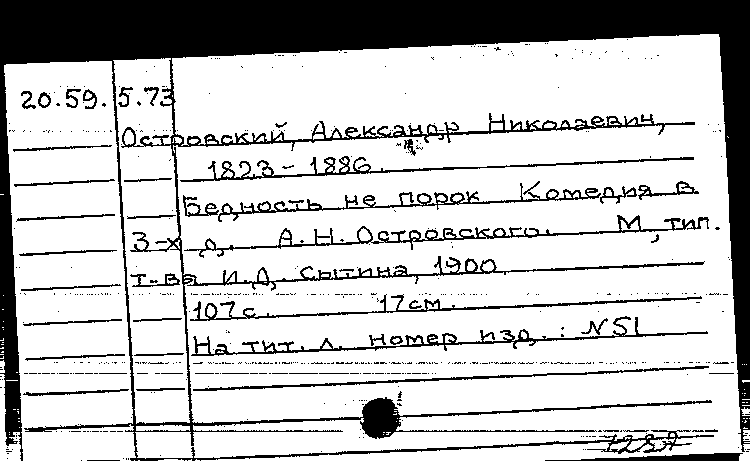 20.59.5.73
Островский, Александр Николаевич,
1823-1886.
Бедность не порок Комедия в
3-х д. А.Н. Островского. М, тип.
т-ва И.Д. Сытина, 1900.
107 с. 17 см.
На тит. л. номер изд.: N51